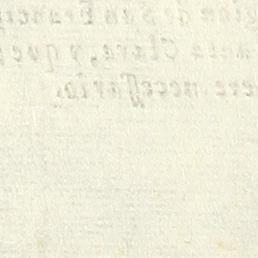 gion de San Francis
anta Clara, y que
ere neceſſario.